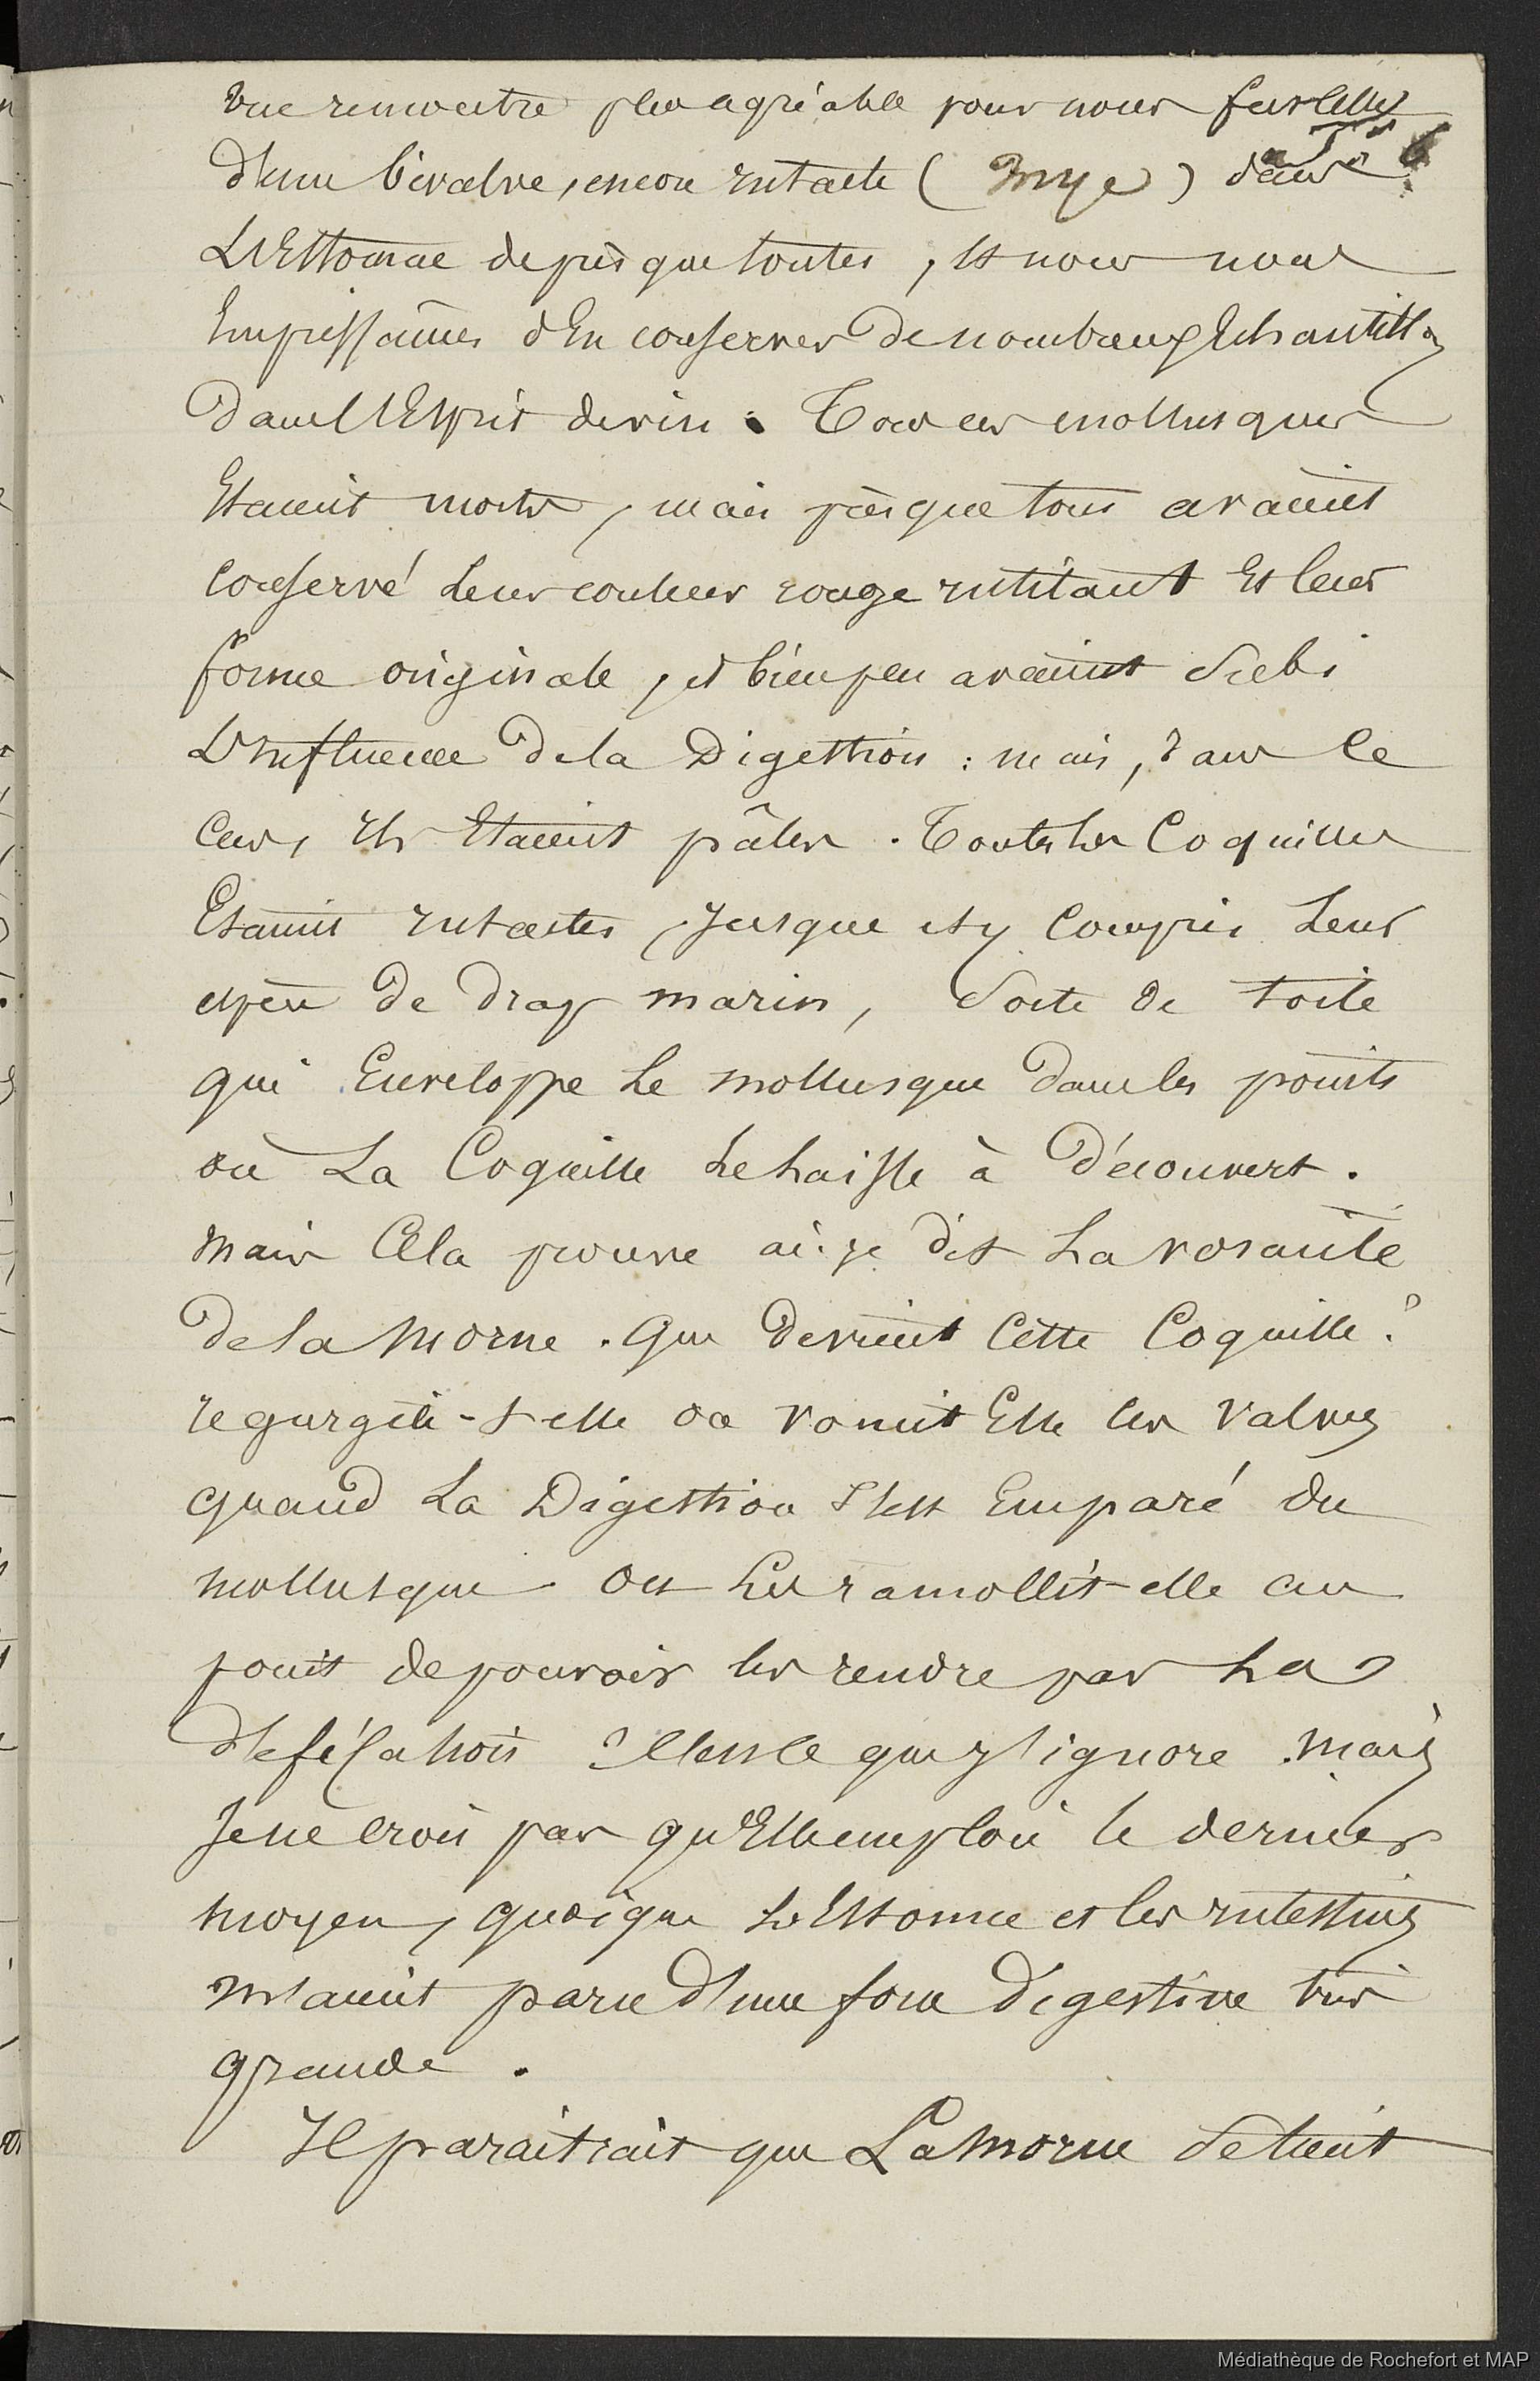 une rencontre plus agréable pour nous fut celle
d'une bivalve, encore intacte (mye) dans
L'Estomac de presque toutes, Et nous nous
Empressâmes d'En conserver de nombreux Echantill
dans l'Esprit de vin. Tous ces mollusques
Etaient morts, mais presque tous avaient
conservé Leur couleur rouge rutilant Et leur
forme originale, et bien peu avaient Subi
L'influence de la Digestion : mais, dans ce
cas, ils Etaient pâles. Toutes les Coquilles
Etaient intactes, jusque et y Compris Leur
espèce de drap marin, Sorte de toile
qui Enveloppe Le mollusque dans les points
où La Coquille Le Laisse à Découvert.
Mais Cela prouve ai-je dit La voracité
de la Morue. Que devient Cette Coquille?
regurgite-t-elle ou vomit Elle les valves
quand La Digestion s'est Emparé du
mollusque. ou Les ramollit-elle au
point de pouvoir les rendre par La
défécation? C'est ce que j'ignore. Mais
Je ne crois pas qu'Elle emploie le dernier
moyen, quoique L'Estomac et les intestins
m'aient paru d'une force digestive très
grande.
Il paraitrait que La Morue Se tient
Médiathèque de Rochefort et MAP